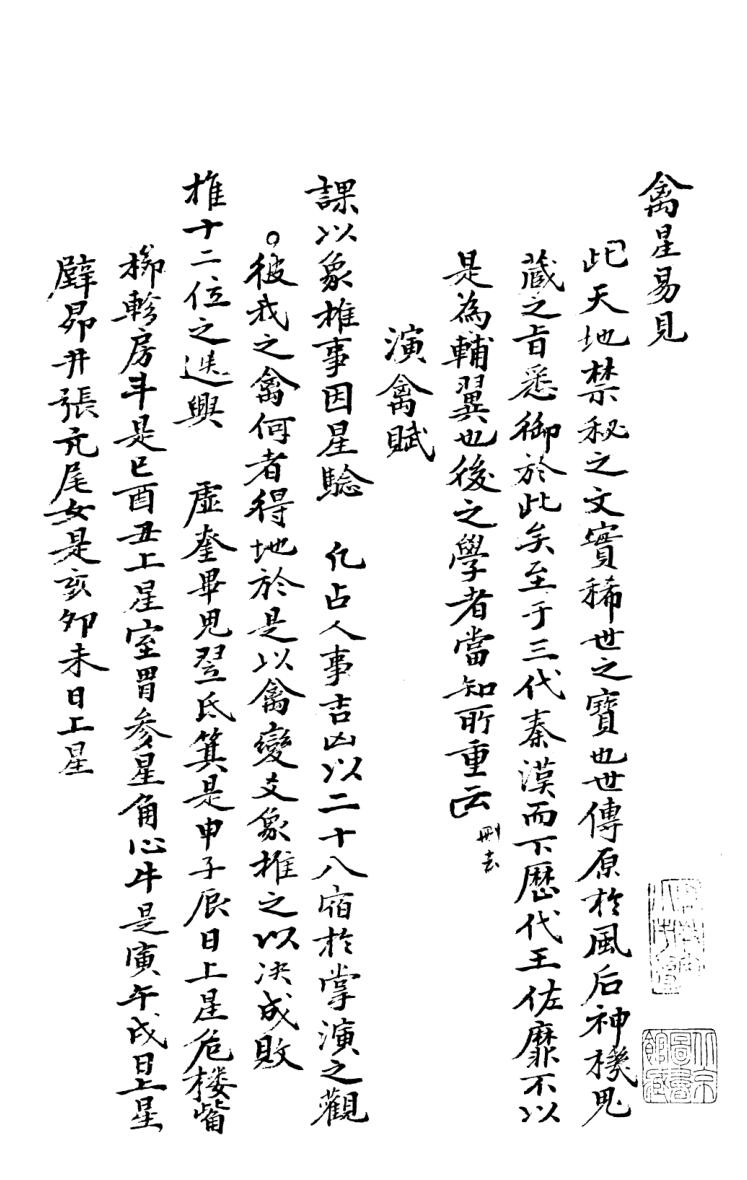 禽星易見
此天地禁秘之文實稀世之寶也世傳原於風后神機鬼
藏之旨悉御於此矣至于三代秦漢而下歷代王佐靡不以
是為輔翼也後之學者當知所重云
刪去
演禽賦
課以象推事因星驗　凡占人事吉凶以二十八宿於掌演之觀
彼我之禽何者得地於是以禽變爻象推之以決成敗
推十二位之迭興　虛奎畢鬼翌氐箕是申子辰日上星危樓觜
柳軫房斗是巳酉丑上星室胃參星角心牛是寅午戌日上星
壁昴井張亢尾女是亥卯未日上星
北京圖書館藏